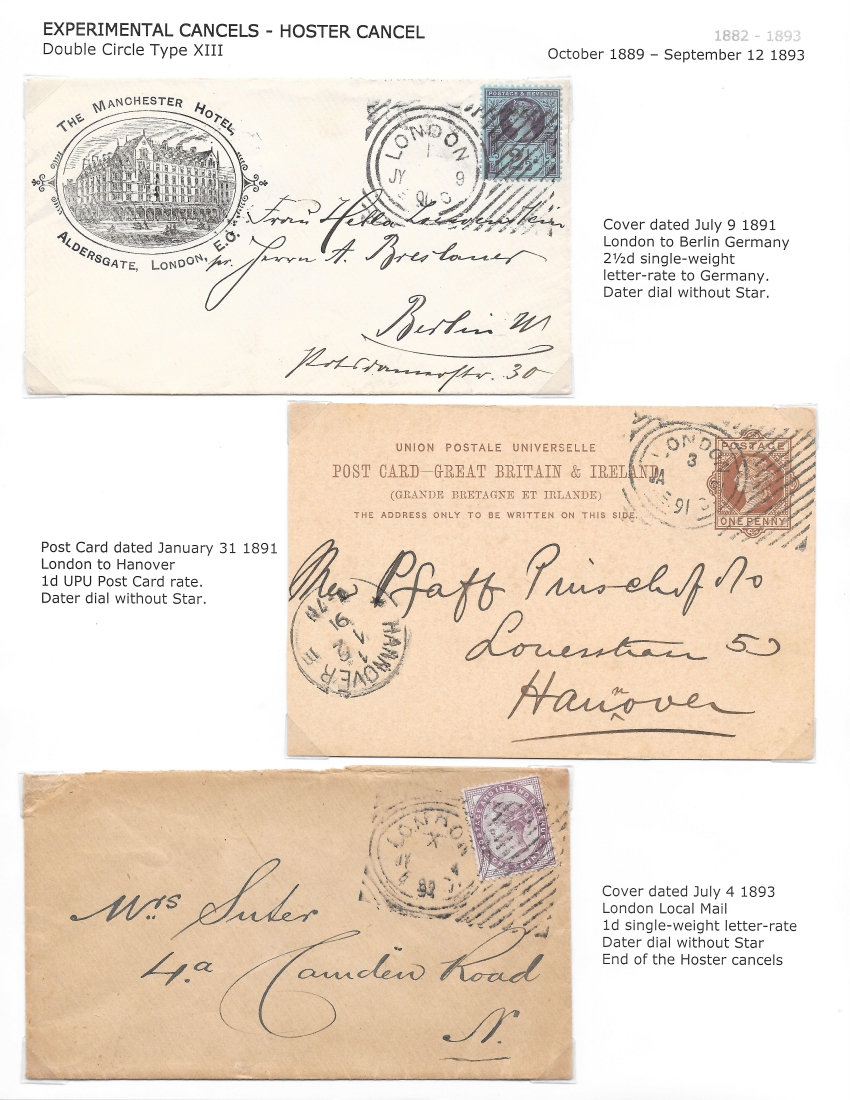 EXPERIMENTAL CANCELS - HOSTER CANCEL
1882 - 1893
Double Circle Type XIII
October 1889 – September 12 1893
THE MANCHESTER HOTEL,
ALDERSGATE, LONDON, E.C.
POSTAGE & REVENUE
LONDON
1
JY 9
Frau Hella Loewenstein
pr. Herrn A. Breslauer
Berlin W
Potsdamerstr. 30
Cover dated July 9 1891
London to Berlin Germany
2½d single-weight
letter-rate to Germany.
Dater dial without Star.
UNION POSTALE UNIVERSELLE
POST CARD—GREAT BRITAIN & IRELAND
(GRANDE BRETAGNE ET IRLANDE)
THE ADDRESS ONLY TO BE WRITTEN ON THIS SIDE.
POSTAGE
ONE PENNY
LONDON
3
JA
91
Pfaff
5
Hannover
HANNOVER
1 2
91
Post Card dated January 31 1891
London to Hanover
1d UPU Post Card rate.
Dater dial without Star.
POSTAGE AND INLAND REVENUE
ONE PENNY
LONDON
X
JY 4
Mrs Suter
4a Camden Road
N.
Cover dated July 4 1893
London Local Mail
1d single-weight letter-rate
Dater dial without Star
End of the Hoster cancels